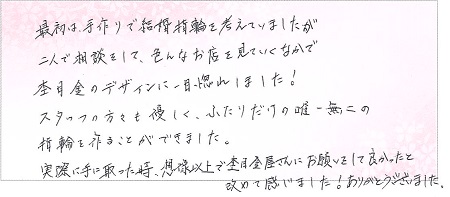 最初は、手作りで結婚指輪を考えていましたが
二人で相談をして、色んなお店を見ていくなかで
杢目金のデザインに一目惚れしました！
スタッフの方々も優しく、ふたりだけの唯一無二の
指輪を作ることができました。
実際に手に取った時、想像以上で杢目金屋さんにお願いをして良かったと
改めて感じました！ありがとうございました。